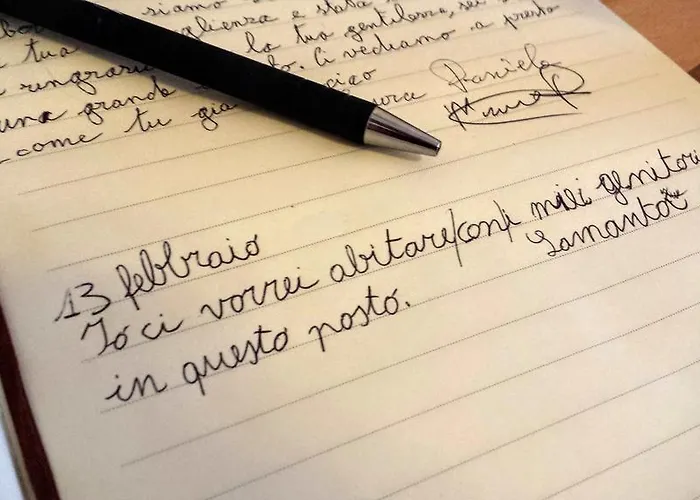 siamo
tua glienza e stata
la tua gentilezza, sei
ringrazi do. Ci vediamo a presto
una grande ciao
come tu già Daniela
13 febbraio
Io ci vorrei abitare (con i miei genitori
in questo posto. Samanta